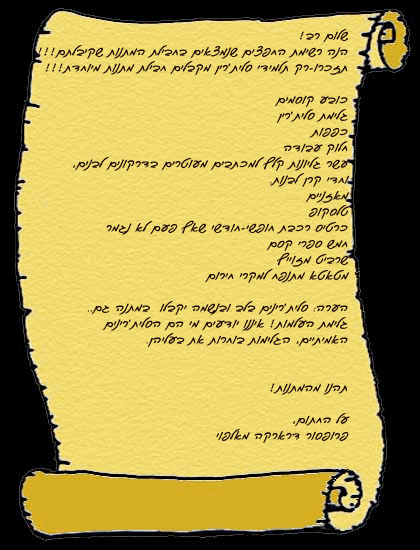 שלום רב!
הנה רשימת החפצים שנמצאים בחבילת המתנות שקיבלתם!!!
תזכרו-רק תלמידי סלית'רין מקבלים חבילת מתנות מיוחדת!!!
כובע קוסמים
גלימת סלית'רין
כפפות
חלוק עבודה
עשר גליונות קלף למכתבים מעוטרים בדרקונים לבנים,
וחדי קרן לבנות.
מאזניים
טלסקופ
כרטיס רכבת חופשי-חודשי שאף פעם לא נגמר
חמש ספרי קסם
שרביט מזוייף
מטאטא מתנפח למקרי חירום
הערה: סלית'רינים בלב ובנשמה יקבלו במתנה גם..
גלימת העלמות! איננו יודעים מי הם הסלית'רינים
האמיתיים, הגלימות בוחרות את בעליהן.
תהנו מהמתנות!
על החתום,
פרופסור דראקה מאלפוי